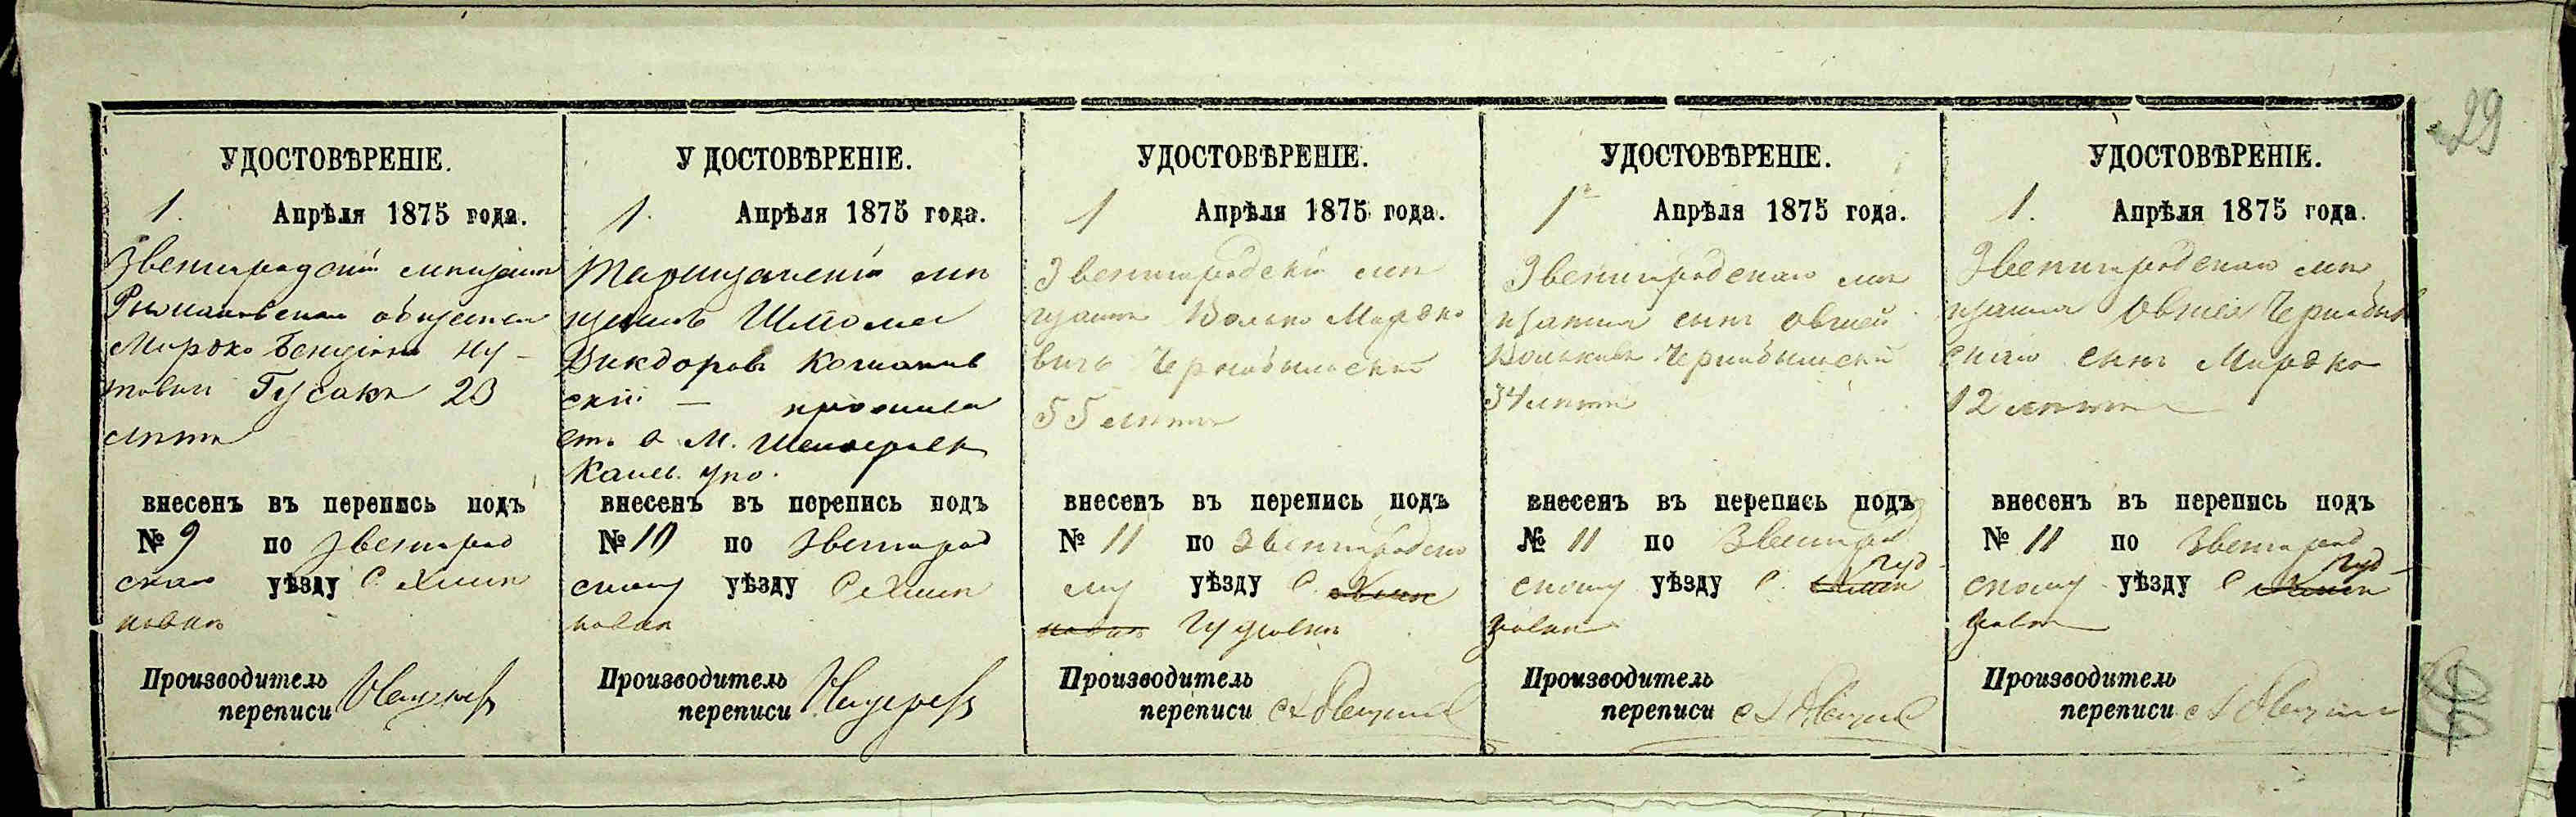 29
УДОСТОВѢРЕНІЕ.
1. Апрѣля 1875 года.
Звенигородскій мѣщан
общества
Мордко Ну-
товъ Гусакъ 23
лѣтъ
внесенъ въ перепись подъ
№ 9 по Звенигород
скому уѣзду С.
новкѣ
Производитель
переписи
УДОСТОВѢРЕНІЕ.
1. Апрѣля 1875 года.
Таращанскій мѣ
щанинъ Шлёма
скій — прожива
етъ в М.
Канев. уѣз.
внесенъ въ перепись подъ
№ 10 по Звенигород
скому уѣзду С.
новкѣ
Производитель
переписи
УДОСТОВѢРЕНІЕ.
1 Апрѣля 1875 года.
Звенигородскій мѣ
щанинъ Волько Мордко
вичъ Чернобыльскій
55 лѣтъ
внесенъ въ перепись подъ
№ 11 по Звенигородско
му уѣзду С.
новкѣ Гудзовкѣ
Производитель
переписи
УДОСТОВѢРЕНІЕ.
1 Апрѣля 1875 года.
Звенигородскаго мѣ
щанина сынъ Овшей
Вольковъ Чернобыльскій
34 лѣтъ
внесенъ въ перепись подъ
№ 11 по Звенигород
скому уѣзду С. Гуд-
зовкѣ
Производитель
переписи
УДОСТОВѢРЕНІЕ.
1. Апрѣля 1875 года.
Звенигородскаго мѣ
щанина Овшея Чернобыль
скаго сынъ Мордко
12 лѣтъ
внесенъ въ перепись подъ
№ 11 по Звенигород
скому уѣзду С. Гуд-
зовкѣ
Производитель
переписи